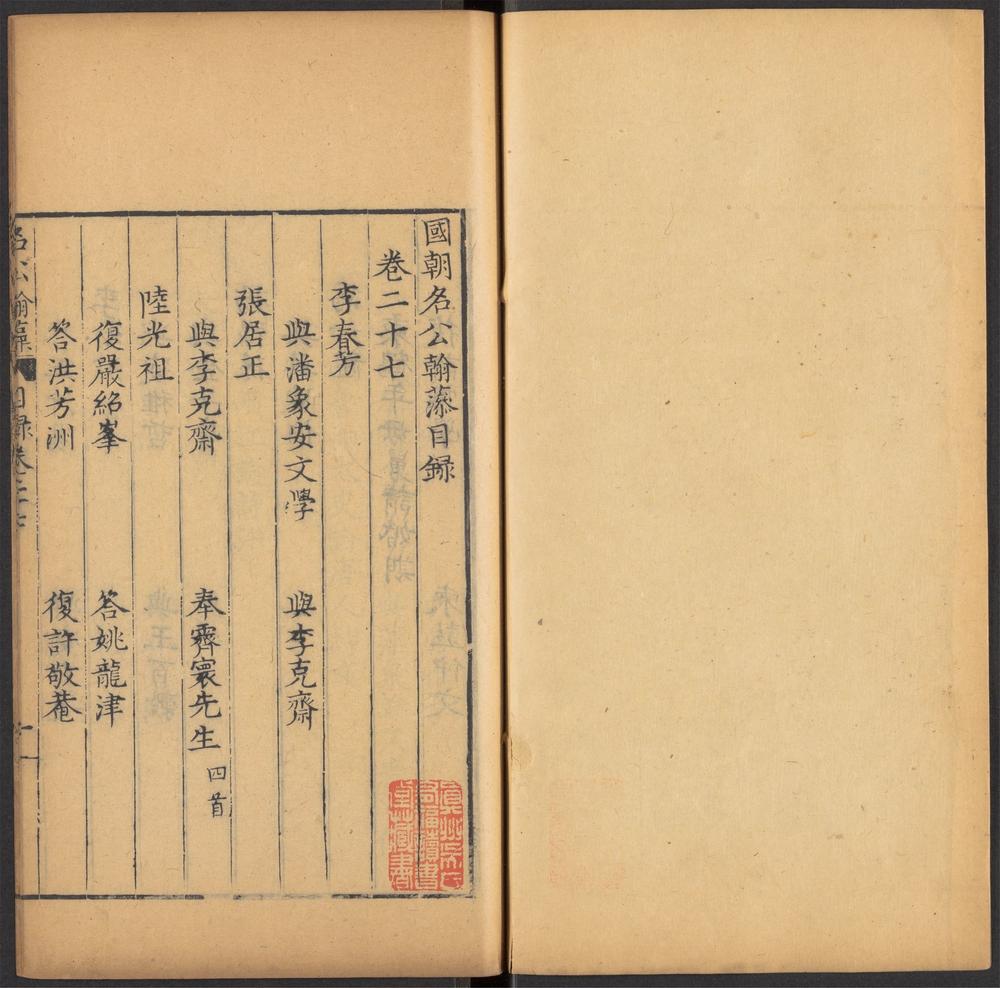 國朝名公翰藻目録
卷二十七
李春芳
與潘象安文學 與李克齋
張居正
與李克齋 奉霽寰先生 四首
陸光祖
復嚴紹峯 答姚龍津
答洪芳洲 復許敬菴
名公翰藻 目録卷二十七 十一
真州吳氏
有福讀書
堂藏書